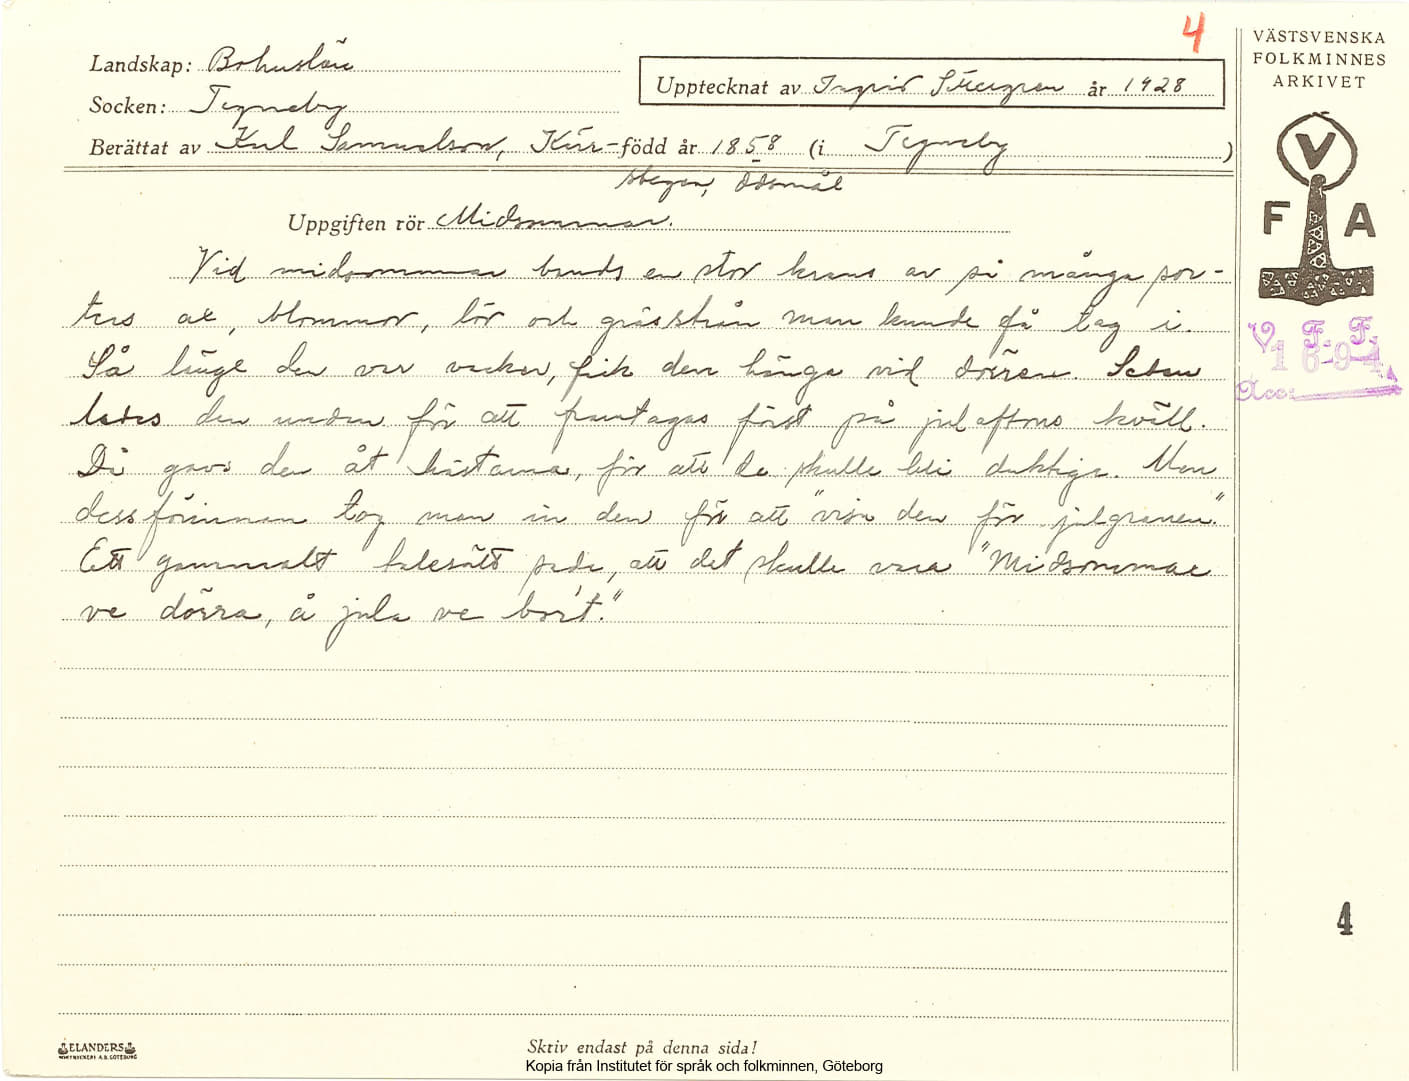 4
VÄSTSVENSKA
FOLKMINNES
ARKIVET
Landskap: Bohuslän
Upptecknat av Ingrid år 1928
Socken: Tegneby
Berättat av Karl Samuelson, Kår- född år 1858 (i Tegneby )
stegen, Ödsmål
V
F A
Uppgiften rör Midsommar.
Vid midsommar bands en stor krans av så många sor-
ters ax, blommor, löv och grässtrån man kunde få tag i.
Så länge den var vacker, fick den hänga vid dörren. Sedan
lades den undan för att framtagas först på julaftons kväll.
Då gavs den åt hästarna, för att de skulle bli duktiga. Men
dessförinnan tog man in den för att "visa den för julgranen."
Ett gammalt talesätt sade, att det skulle vara "Midsommar
ve dörra, å jula ve bort."
V. F. F.
1694
Acc:
4
ELANDERS
Skriv endast på denna sida!
Kopia från Institutet för språk och folkminnen, Göteborg